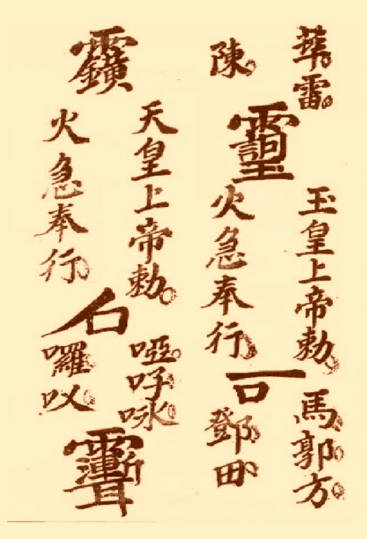 華雷
玉皇上帝勅
馬郭方
陳
火急奉行
鄧田
天皇上帝勅
啞吇咏
火急奉行
囉